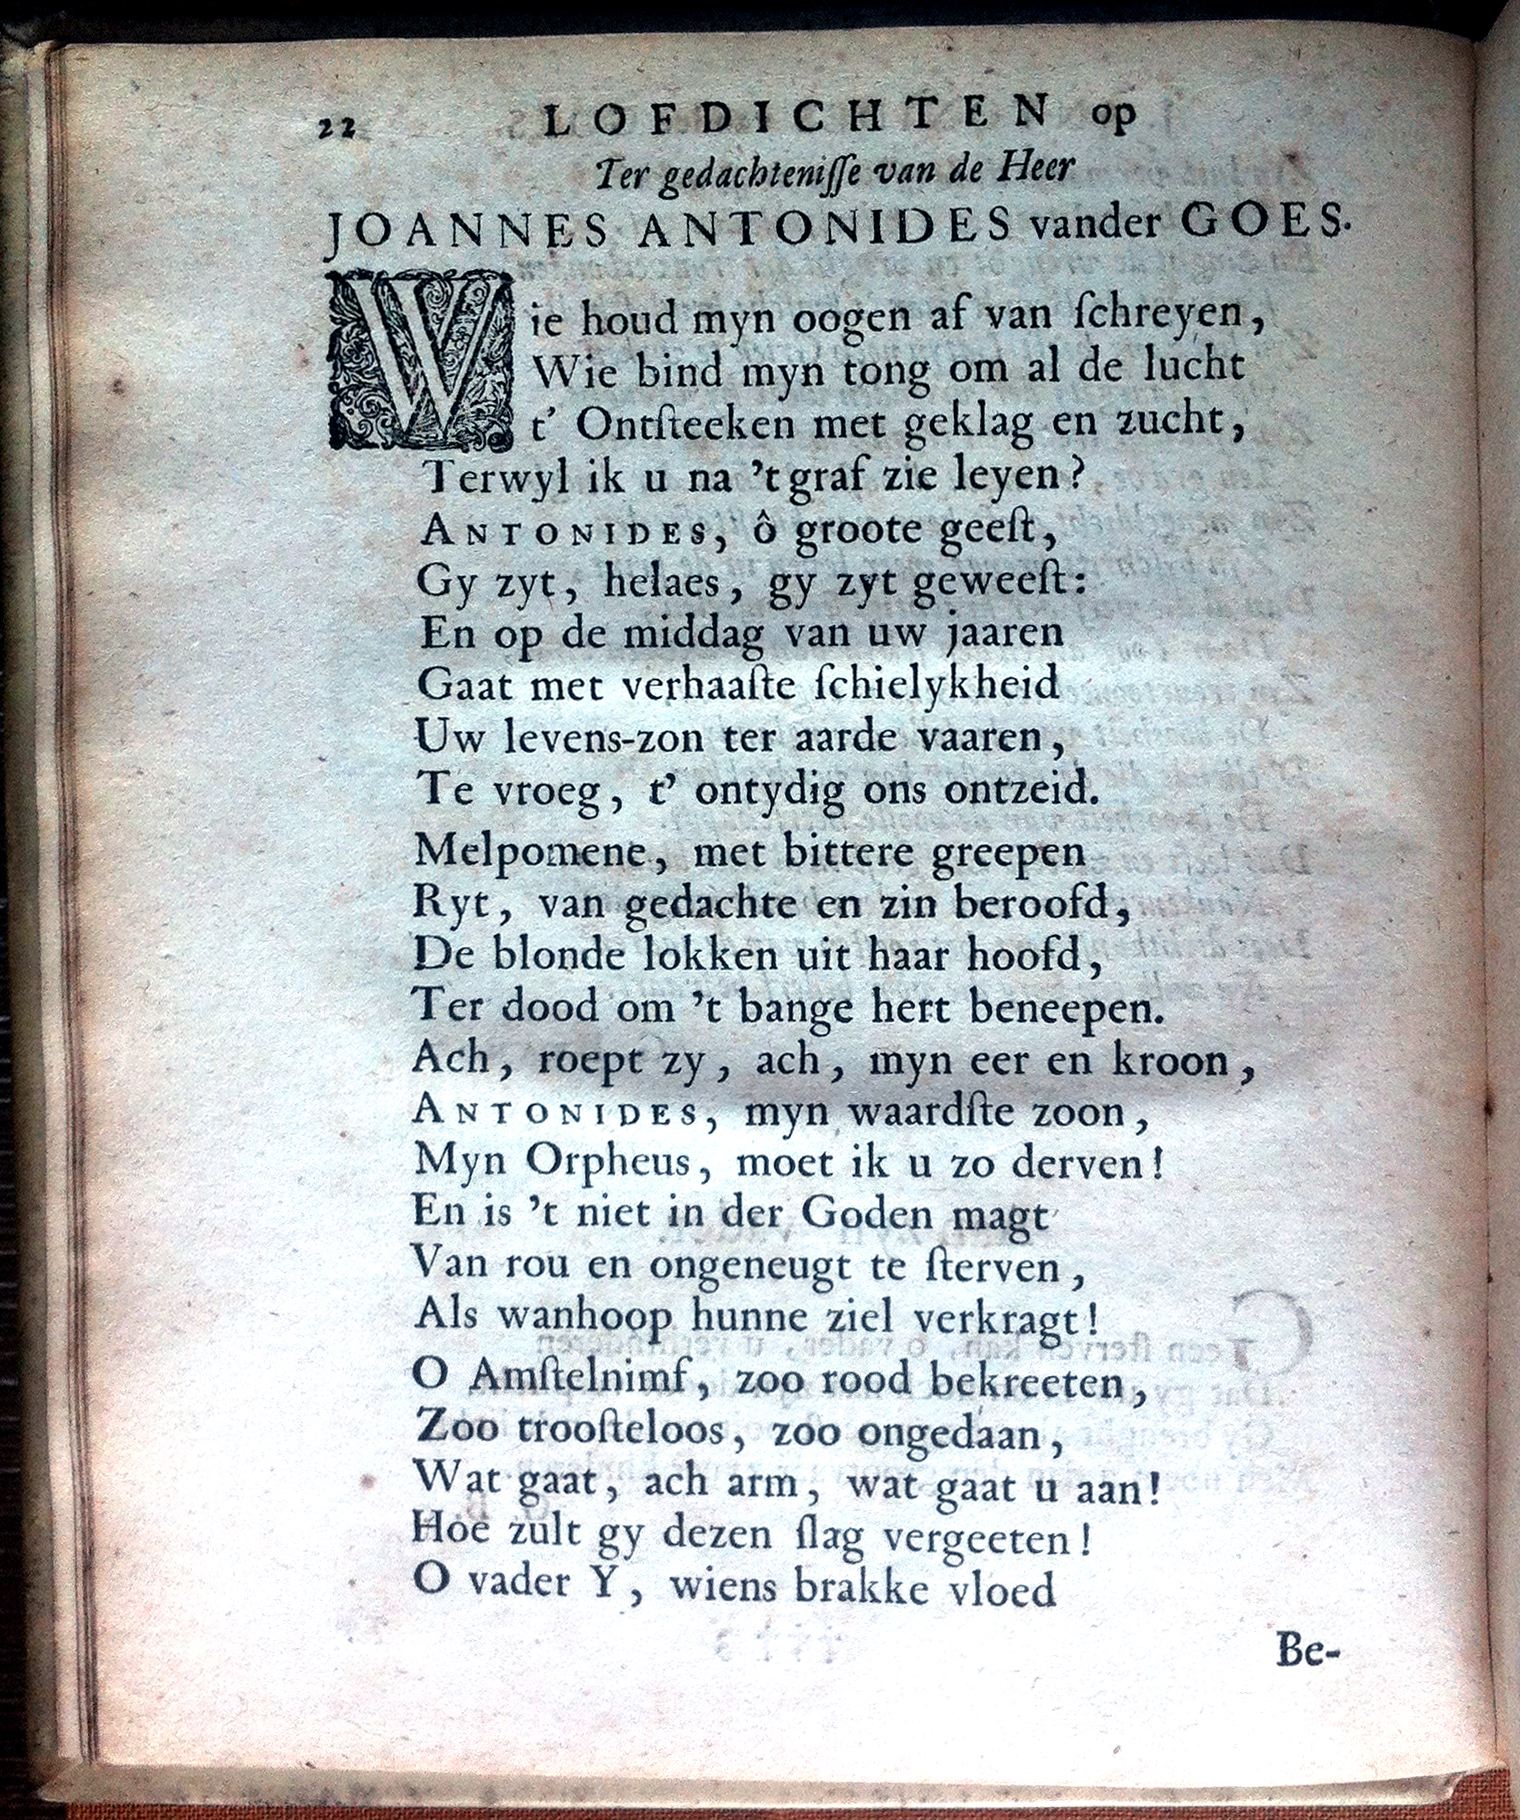 22 LOFDICHTEN op
Ter gedachteniſſe van de Heer
JOANNES ANTONIDES vander GOES.
Wie houd myn oogen af van ſchreyen,
Wie bind myn tong om al de lucht
t' Ontſteeken met geklag en zucht,
Terwyl ik u na 't graf zie leyen?
ANTONIDES, ô groote geeſt,
Gy zyt, helaes, gy zyt geweeſt:
En op de middag van uw jaaren
Gaat met verhaaſte ſchielykheid
Uw levens-zon ter aarde vaaren,
Te vroeg, t' ontydig ons ontzeid.
Melpomene, met bittere greepen
Ryt, van gedachte en zin beroofd,
De blonde lokken uit haar hoofd,
Ter dood om 't bange hert beneepen.
Ach, roept zy, ach, myn eer en kroon,
ANTONIDES, myn waardſte zoon,
Myn Orpheus, moet ik u zo derven!
En is 't niet in der Goden magt
Van rou en ongeneugt te ſterven,
Als wanhoop hunne ziel verkragt!
O Amſtelnimf, zoo rood bekreeten,
Zoo trooſteloos, zoo ongedaan,
Wat gaat, ach arm, wat gaat u aan!
Hoe zult gy dezen ſlag vergeeten!
O vader Y, wiens brakke vloed
Be-